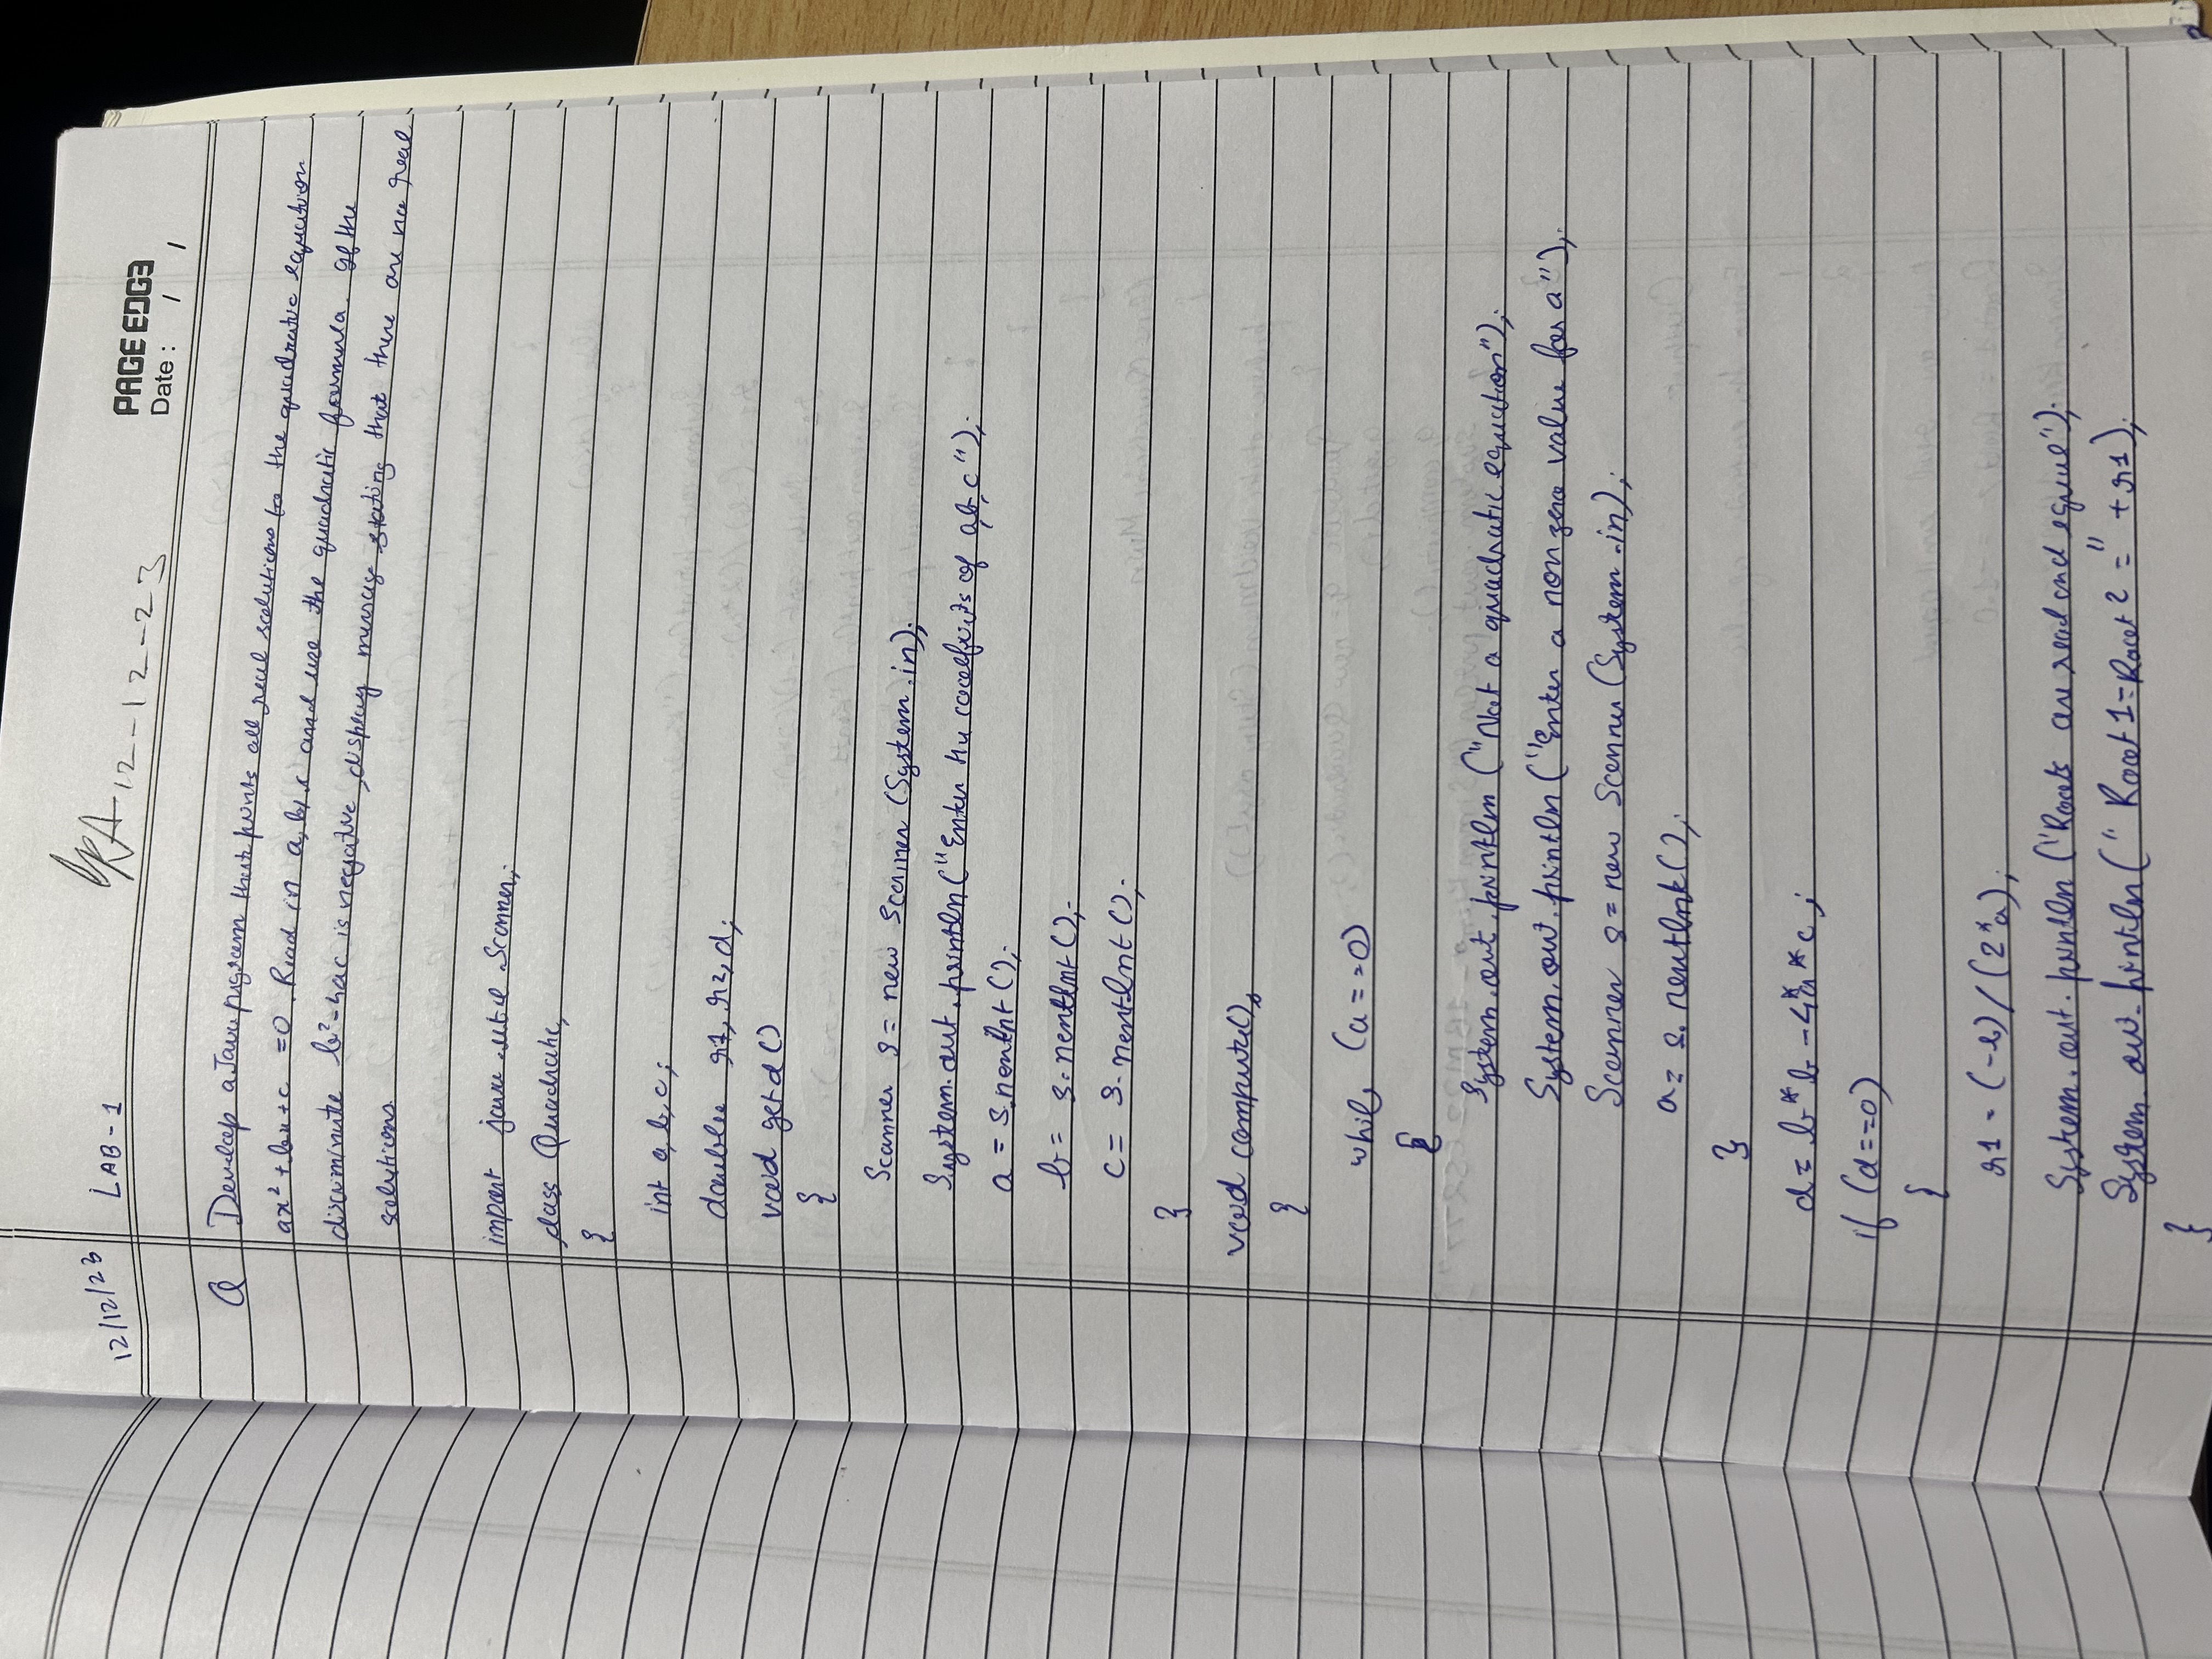 12/12/23 LAB-1 12-12-23 PAGE EDGE
Date : / /
Q Develop a Java program that prints all real solutions to the quadratic equation
ax²+bx+c =0. Read in a, b, c and use the quadratic formula. If the
discriminate b²-4ac is negative, display message stating that there are no real
solutions.
import java.util.Scanner;
class Quadratic
{
int a, b, c;
double r1, r2, d;
void getd()
{
Scanner s = new Scanner (System.in);
System.out.println("Enter the of a, b, c");
a = s.nextInt();
b = s.nextInt();
c = s.nextInt();
}
void compute()
{
while (a==0)
{
System.out.println ("Not a quadratic equation");
System.out.println ("Enter a non zero value for a");
Scanner s = new Scanner (System.in);
a = s.nextInt();
}
d = b*b - 4*a*c;
if (d==0)
{
r1 = (-b)/(2*a);
System.out.println ("Roots are real and equal");
System.out.println (" Root 1 = Root 2 =" +r1);
}